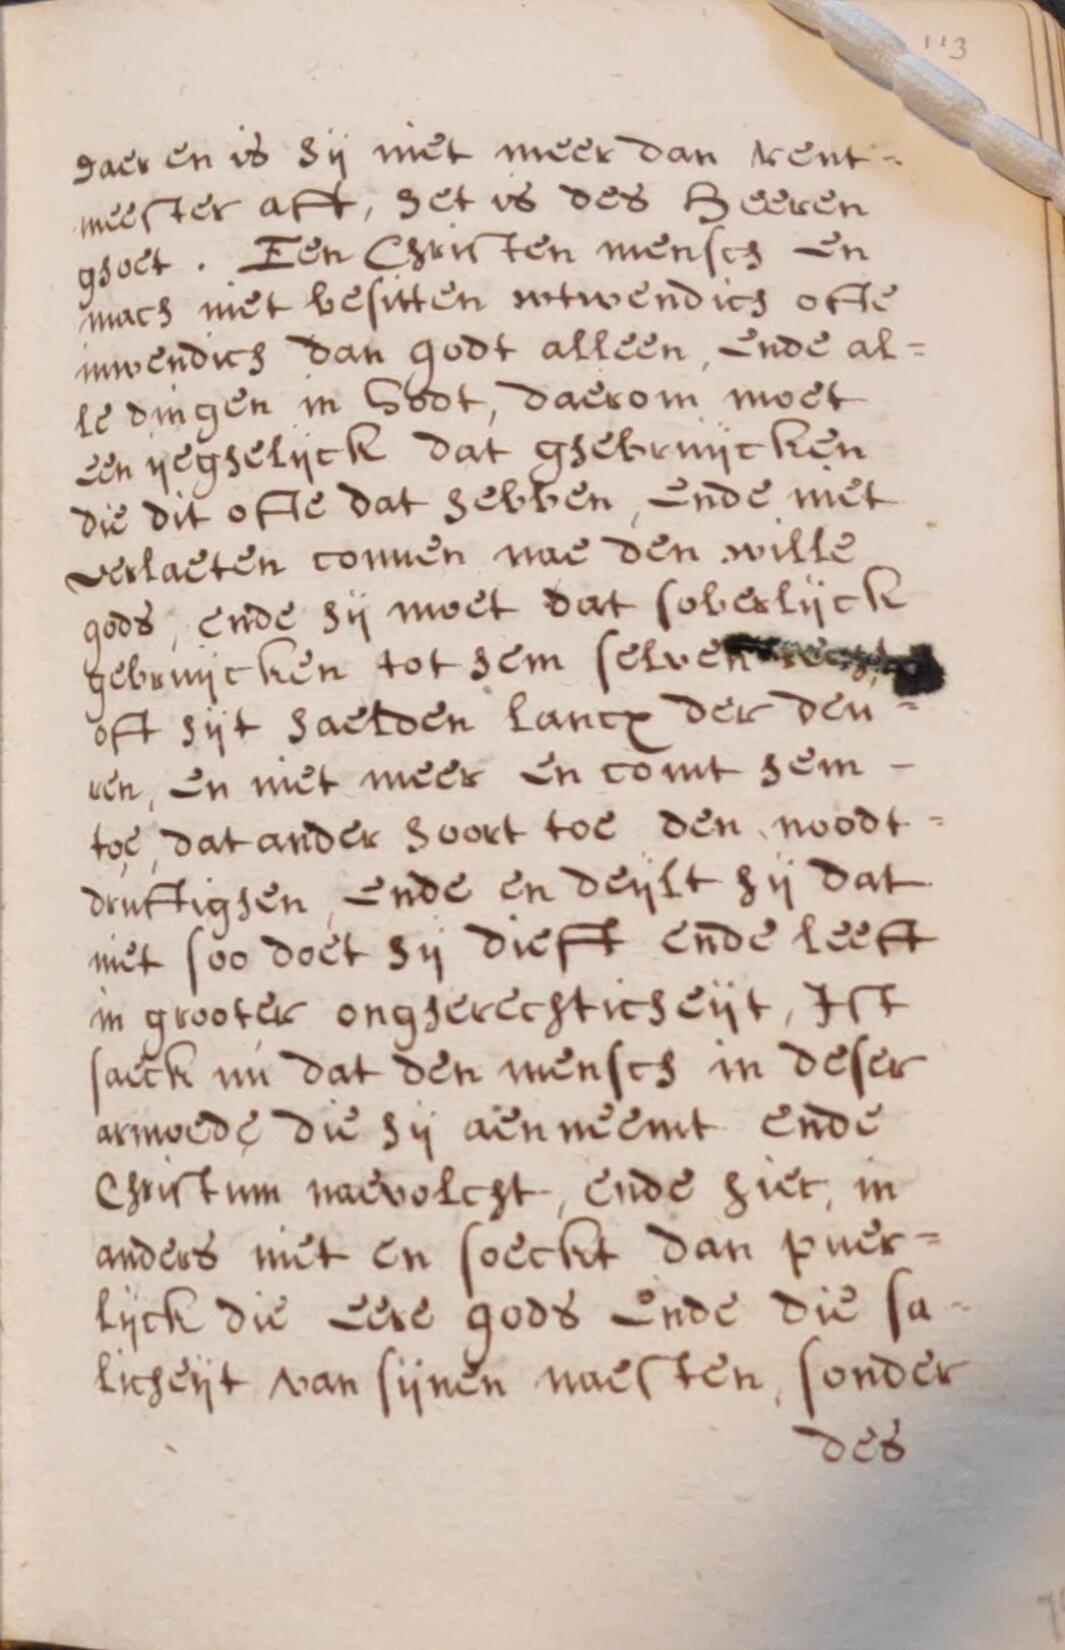 113
daer en is hij niet meer dan rent=
meester aft, het is des Heeren
ghoet. Een Christen mensch en
mach niet besitten wtwendich ofte
inwendich dan godt alleen, ende al=
le dingen in Godt, daerom moet
een ijeghelijck dat ghebruijcken
die dit ofte dat hebben, ende niet
verlaeten connen nae den wille
gods, ende hij moet dat soberlijck
gebruijcken tot hem selven
oft hijt haelden lancx der deu=
ren, en niet meer en comt hem -
toe, dat ander hoort toe den noodt=
druftighen, ende en deijlt hij dat
niet soo doet hij dieft ende leeft
in grooter ongherechticheijt, Ist
saeck nu dat den mensch in deser
armoede die hij aenneemt ende
Christum naevolcht, ende hier in
anders niet en soeckt dan puer=
lijck die eere gods ende die sa=
licheijt van sijnen naesten, sonder
des